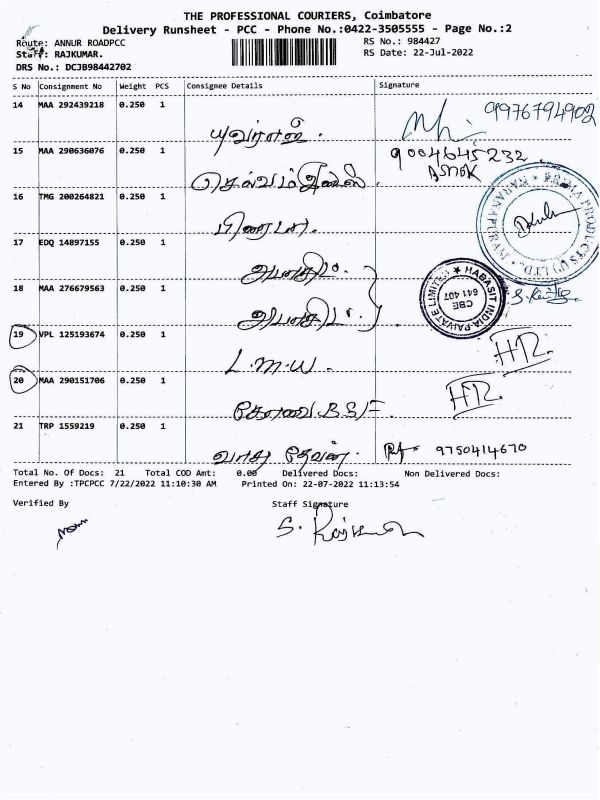 THE PROFESSIONAL COURIERS, Coimbatore
Delivery Runsheet - PCC - Phone No.:0422-3505555 - Page No.:2
Route: ANNUR ROADPCC
RS No.: 984427
Staff: RAJKUMAR.
RS Date: 22-Jul-2022
DRS No.: DCJB98442702
S No Consignment No Weight PCS Consignee Details Signature
14 MAA 292439218 0.250 1 9976794902
15 MAA 290636076 0.250 1 9004645232
ASHOK
16 TMG 200264821 0.250 1
17 EDQ 14897155 0.250 1
18 MAA 276679563 0.250 1
HABASIT INDIA PRIVATE LIMITED
CBE
641 407
19 VPL 125193674 0.250 1 L.M.W.
20 MAA 290151706 0.250 1 கோவை BSF.
21 TRP 1559219 0.250 1 வாசு தேவன். 9750414670
Total No. Of Docs: 21 Total COD Amt: 0.00 Delivered Docs: Non Delivered Docs:
Entered By :TPCPCC 7/22/2022 11:10:30 AM Printed On: 22-07-2022 11:13:54
Verified By Staff Signature